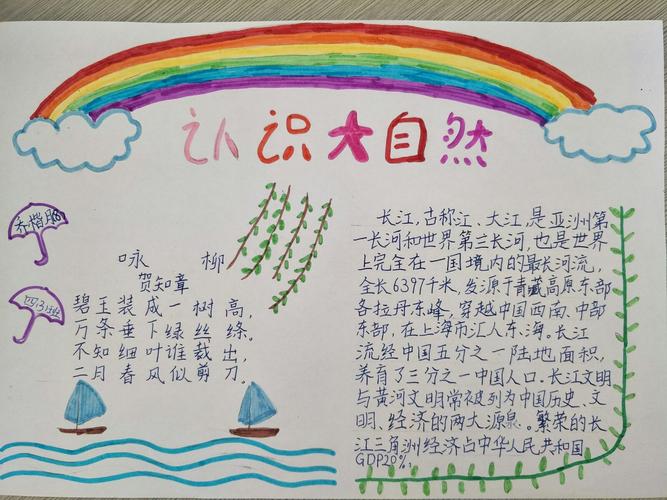 认识大自然
四3班
咏 柳
贺知章
碧玉装成一树高,
万条垂下绿丝绦。
不知细叶谁裁出,
二月春风似剪刀。
长江,古称江、大江,是亚洲第
一长河和世界第三长河,也是世界
上完全在一国境内的最长河流,
全长6397千米,发源于青藏高原东部
各拉丹东峰,穿越中国西南、中部
东部,在上海市汇入东海。长江
流经中国五分之一陆地面积,
养育了三分之一中国人口。长江文明
与黄河文明常被列为中国历史、文
明、经济的两大源泉。繁荣的长
江三角洲经济占中华人民共和国
GDP20%。